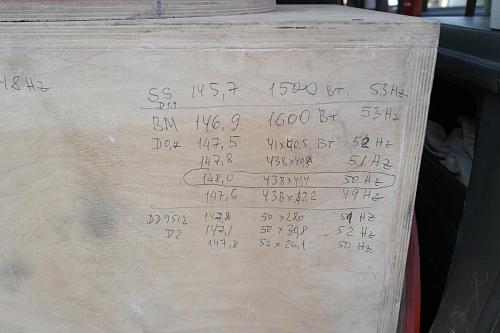 48Hz
SS 145,7 1500 Вт. 53Hz
D1,1
BM 146,9 1600 Вт 53Hz
147,5 Вт 52 Hz
147,8 51 Hz
148,0 43В×41,4 50 Hz
147,6 43В×42,2 49 Hz
DD9512 147,8 50×28,0 Hz
D2 147,1 50×30,8 52 Hz
147,8 52×26,1 50 Hz